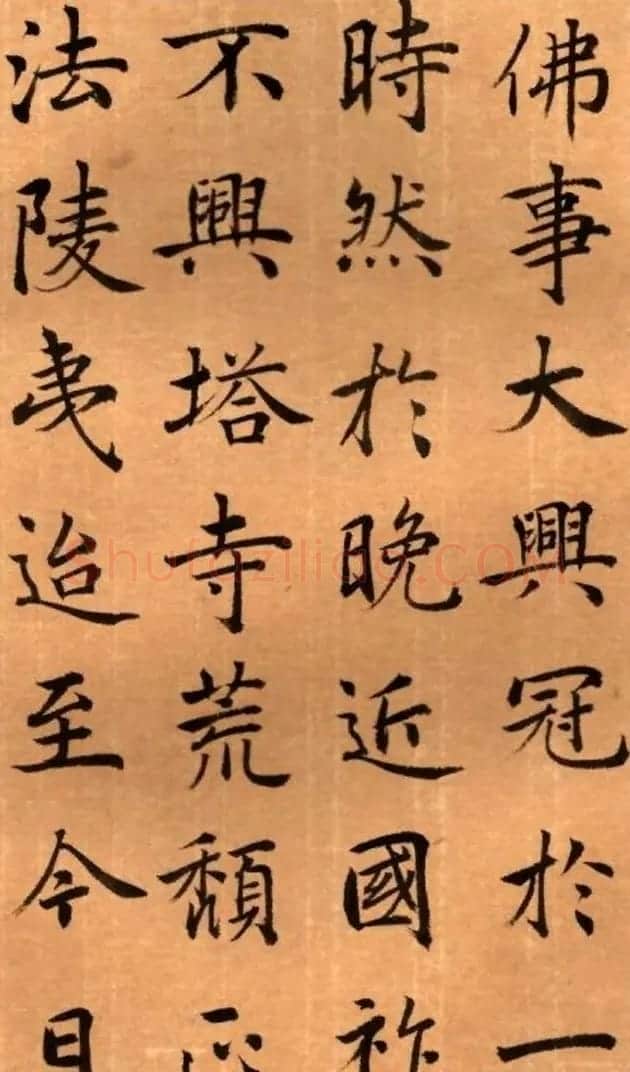 佛事大興冠於一
時然於晚近國祚
不興塔寺荒頹正
法陵夷迨至今日